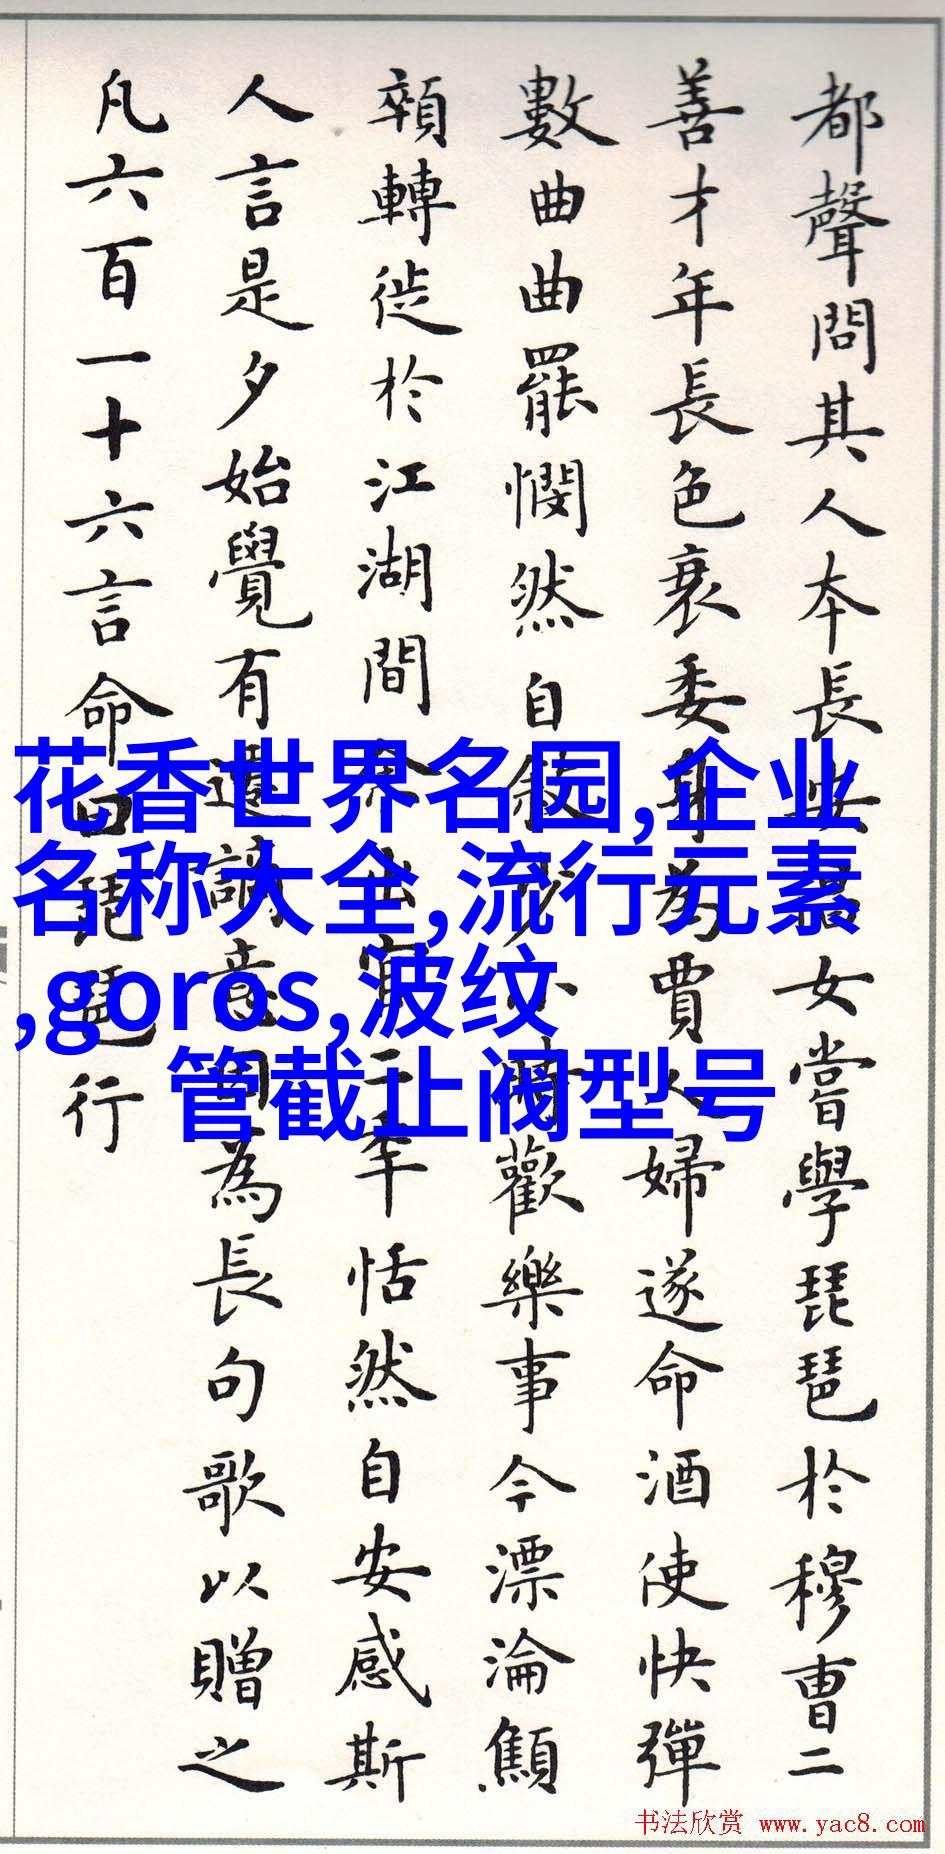 都聲問其人本長安倡女嘗學琵琶於穆曹二
善才年長色衰委身為賈人婦遂命酒使快彈
數曲曲罷憫然自敘少小時歡樂事今漂淪顦
顇轉徙於江湖間余出官二年恬然自安感斯
人言是夕始覺有遷謫意因為長句歌以贈之
凡六百一十六言命曰琵琶行
花香世界名园,企业
名称大全,流行元素
,goros,波纹
管截止阀型号
书法欣赏 www.yac8.com